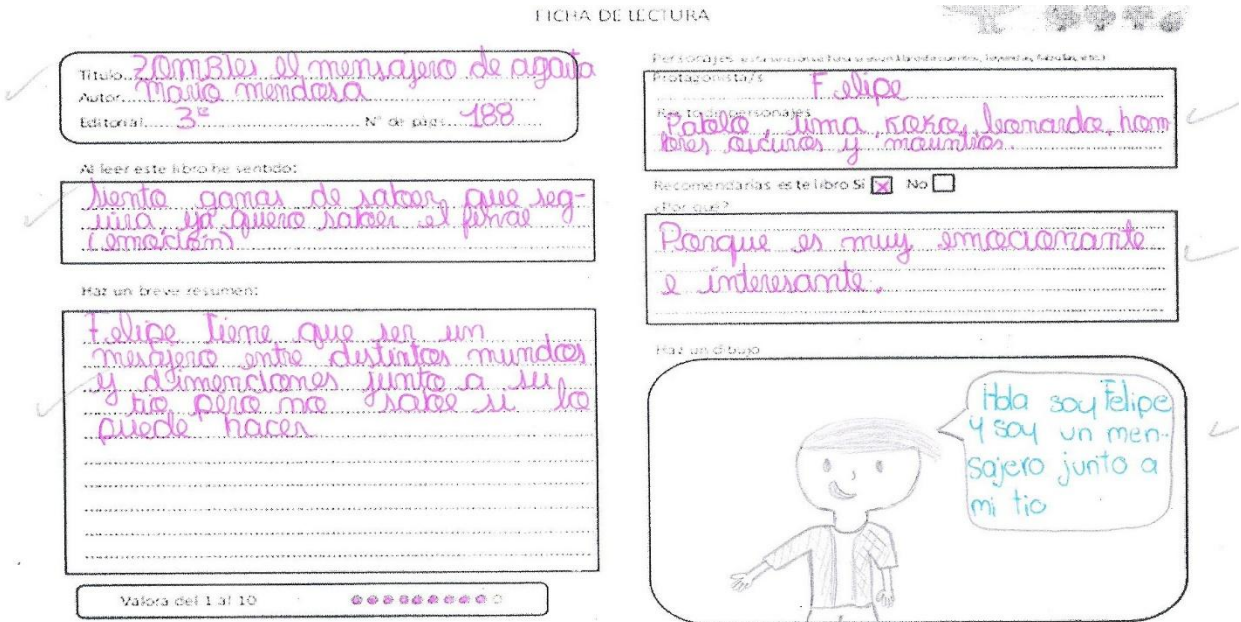 FICHA DE LECTURA
Título... Zombies el mensajero de agarta
Autor... Mario mendosa
Editorial... 3ª Nº de págs. 188
Al leer este libro he sentido:
Siento ganas de saber que seg-
uira, ya quiero saber el final
(emoción)
Haz un breve resumen:
Felipe tiene que ser un
mesajero entre distintos mundos
y dimenciones junto a su
tio pero no sabe si lo
puede hacer
Valora del 1 al 10
Personajes
Protagonista/s
Felipe
Resto de personajes
lima, leonardo, hom
bres oscuros y
Recomendarías este libro Si No
¿Por qué?
Porque es muy emocionante
e interesante.
Haz un dibujo
Hola soy Felipe
y soy un men-
sajero junto a
mi tio